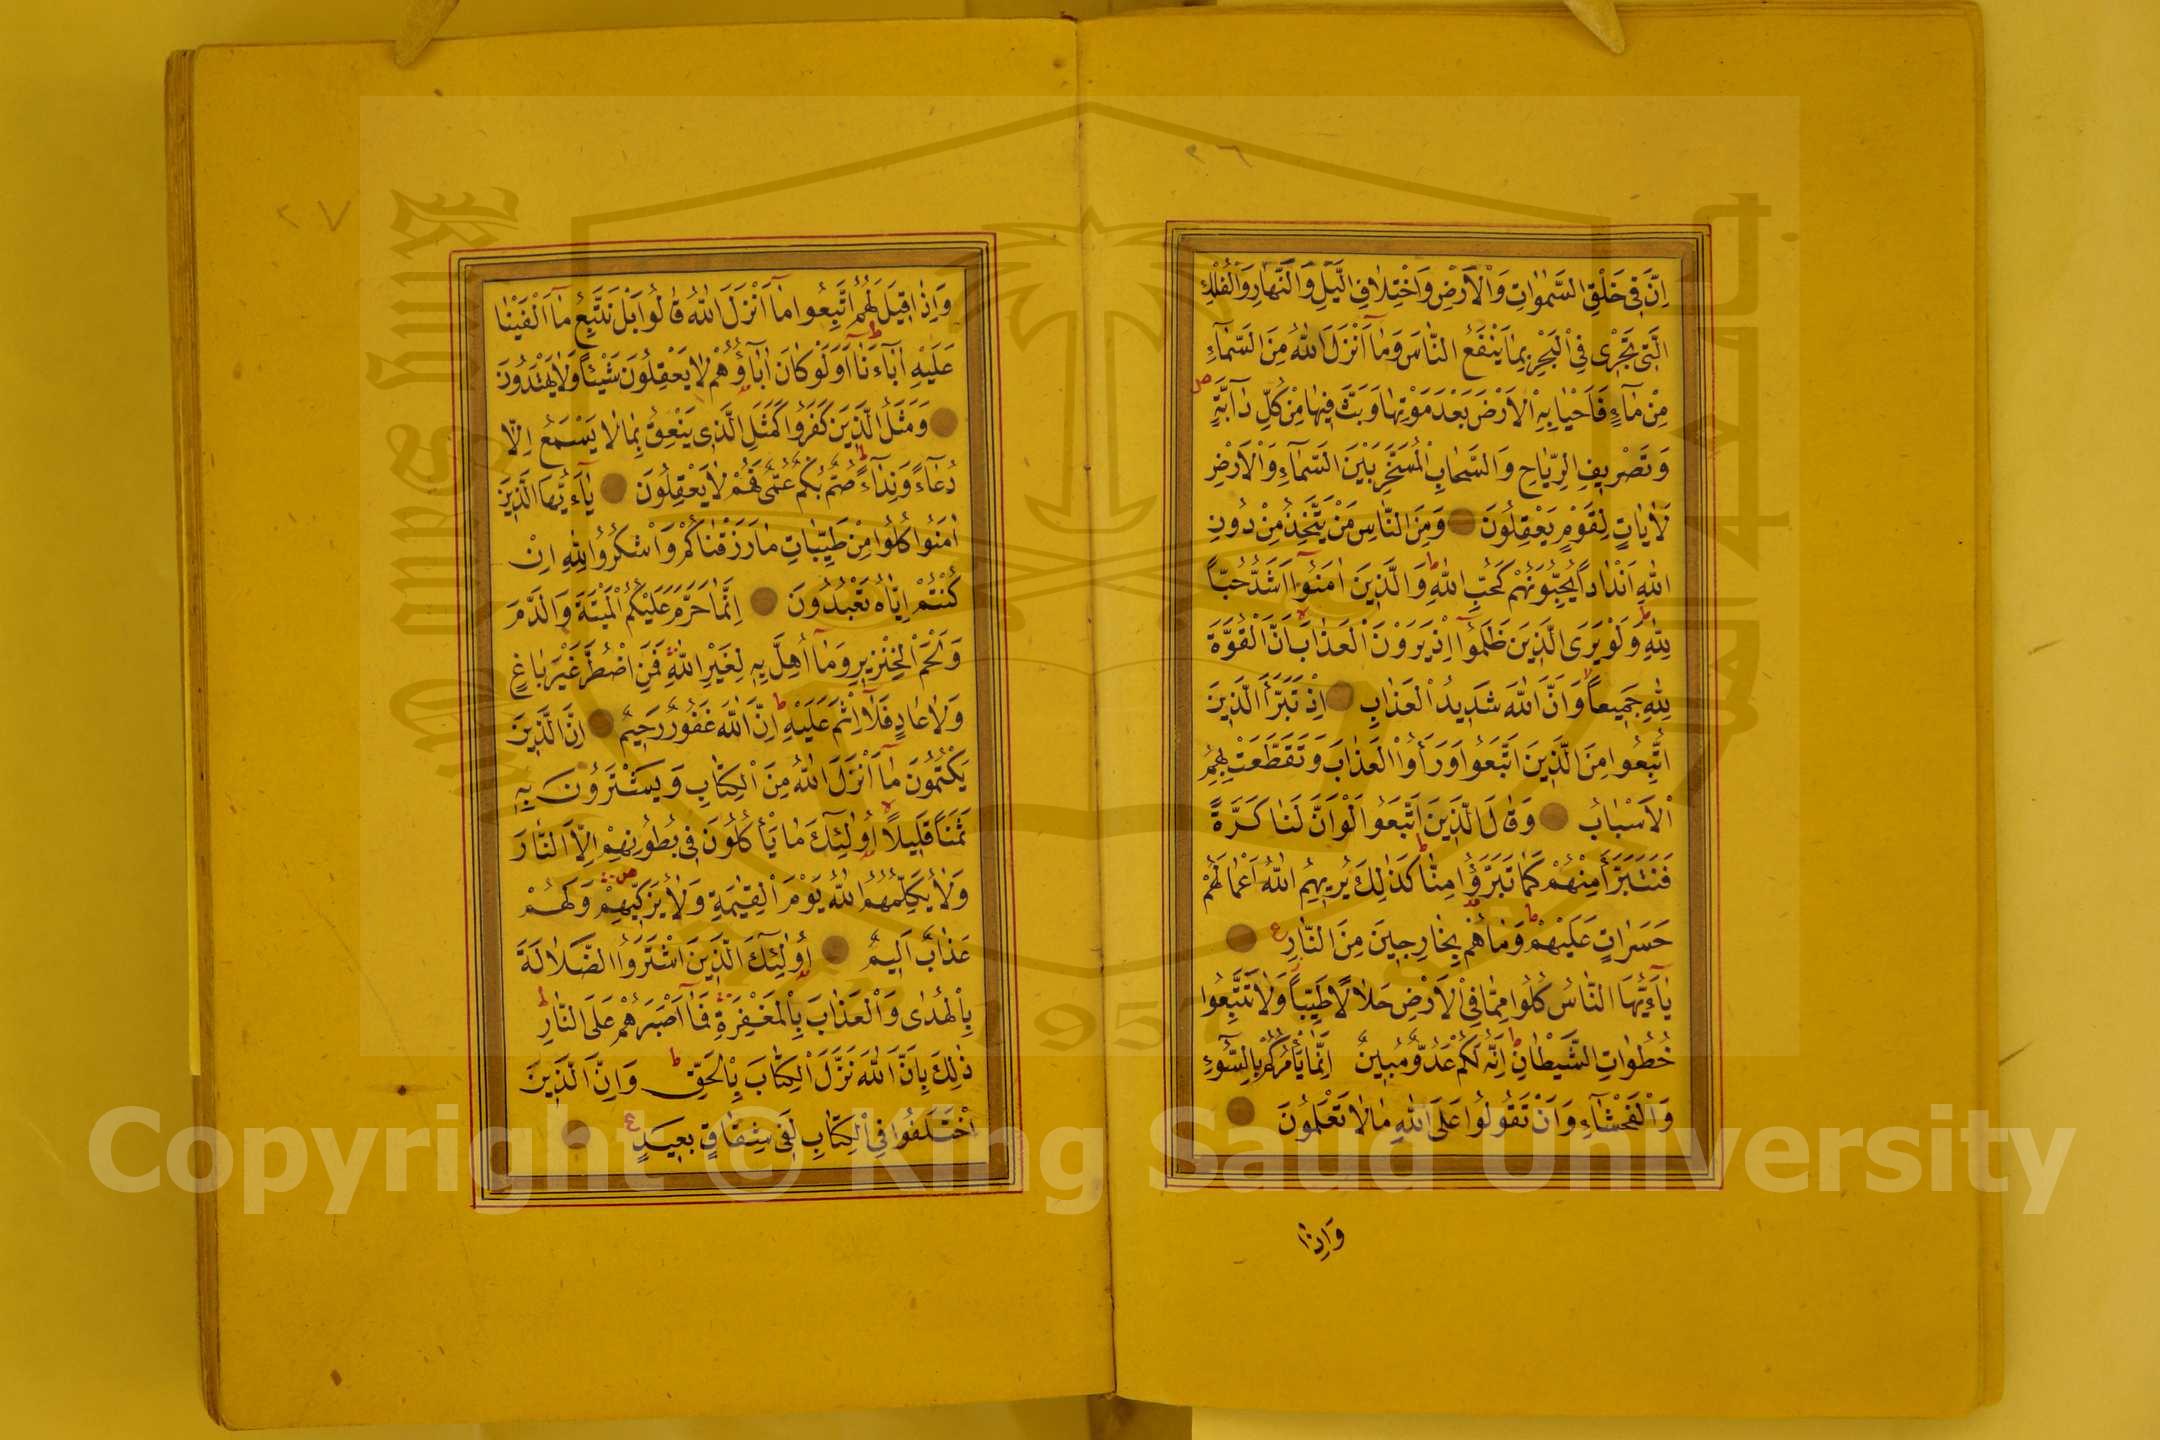 ٢٦
اِنَّ فِى خَلْقِ السَّمٰوَاتِ وَالْاَرْضِ وَاخْتِلَافِ الَّيْلِ وَالنَّهَارِ وَالْفُلْكِ
الَّتِى تَجْرِى فِى الْبَحْرِ بِمَا يَنْفَعُ النَّاسَ وَمَٓا اَنْزَلَ اللّٰهُ مِنَ السَّمَٓاءِ
مِنْ مَٓاءٍ فَاَحْيَا بِهِ الْاَرْضَ بَعْدَ مَوْتِهَا وَبَثَّ فِيهَا مِنْ كُلِّ دَٓابَّةٍ ص
وَتَصْرِيفِ الرِّيَاحِ وَالسَّحَابِ الْمُسَخَّرِ بَيْنَ السَّمَٓاءِ وَالْاَرْضِ
لَاٰيَاتٍ لِقَوْمٍ يَعْقِلُونَ وَمِنَ النَّاسِ مَنْ يَتَّخِذُ مِنْ دُونِ
اللّٰهِ اَنْدَاداً يُحِبُّونَهُمْ كَحُبِّ اللّٰهِ ط وَالَّذِينَ اٰمَنُٓوا اَشَدُّ حُبّاً
لِلّٰهِ ط وَلَوْ يَرَى الَّذِينَ ظَلَمُٓوا اِذْ يَرَوْنَ الْعَذَابَ لا اَنَّ الْقُوَّةَ
لِلّٰهِ جَمِيعاً لا وَاَنَّ اللّٰهَ شَدِيدُ الْعَذَابِ اِذْ تَبَرَّاَ الَّذِينَ
اتُّبِعُوا مِنَ الَّذِينَ اتَّبَعُوا وَرَاَوُا الْعَذَابَ وَتَقَطَّعَتْ بِهِمُ
الْاَسْبَابُ وَقَالَ الَّذِينَ اتَّبَعُوا لَوْ اَنَّ لَنَا كَرَّةً
فَنَتَبَرَّاَ مِنْهُمْ كَمَا تَبَرَّؤُا مِنَّا ط كَذٰلِكَ يُرِيهِمُ اللّٰهُ اَعْمَالَهُمْ
حَسَرَاتٍ عَلَيْهِمْ ط وَمَا هُمْ بِخَارِجِينَ مِنَ النَّارِ ع
يَٓا اَيُّهَا النَّاسُ كُلُوا مِمَّا فِى الْاَرْضِ حَلَالًا طَيِّباً وَلَا تَتَّبِعُوا
خُطُوَاتِ الشَّيْطَانِ ط اِنَّهُ لَكُمْ عَدُوٌّ مُبِينٌ اِنَّمَا يَاْمُرُكُمْ بِالسُّٓوءِ
وَالْفَحْشَٓاءِ وَاَنْ تَقُولُوا عَلَى اللّٰهِ مَا لَا تَعْلَمُونَ
وَاِذَا
٢٧
وَاِذَا قِيلَ لَهُمُ اتَّبِعُوا مَٓا اَنْزَلَ اللّٰهُ قَالُوا بَلْ نَتَّبِعُ مَٓا اَلْفَيْنَا
عَلَيْهِ اٰبَٓاءَنَا ط اَوَلَوْ كَانَ اٰبَٓاؤُهُمْ لَا يَعْقِلُونَ شَيْئاً وَلَا يَهْتَدُونَ
وَمَثَلُ الَّذِينَ كَفَرُوا كَمَثَلِ الَّذِى يَنْعِقُ بِمَا لَا يَسْمَعُ اِلَّا
دُعَٓاءً وَنِدَٓاءً ط صُمٌّ بُكْمٌ عُمْىٌ فَهُمْ لَا يَعْقِلُونَ يَٓا اَيُّهَا الَّذِينَ
اٰمَنُوا كُلُوا مِنْ طَيِّبَاتِ مَا رَزَقْنَاكُمْ وَاشْكُرُوا لِلّٰهِ اِنْ
كُنْتُمْ اِيَّاهُ تَعْبُدُونَ اِنَّمَا حَرَّمَ عَلَيْكُمُ الْمَيْتَةَ وَالدَّمَ
وَلَحْمَ الْخِنْزِيرِ وَمَٓا اُهِلَّ بِهِ لِغَيْرِ اللّٰهِ فَمَنِ اضْطُرَّ غَيْرَ بَاغٍ
وَلَا عَادٍ فَلَٓا اِثْمَ عَلَيْهِ ط اِنَّ اللّٰهَ غَفُورٌ رَحِيمٌ اِنَّ الَّذِينَ
يَكْتُمُونَ مَٓا اَنْزَلَ اللّٰهُ مِنَ الْكِتَابِ وَيَشْتَرُونَ بِهِ
ثَمَناً قَلِيلًا لا اُولٰٓئِكَ مَا يَاْكُلُونَ فِى بُطُونِهِمْ اِلَّا النَّارَ
وَلَا يُكَلِّمُهُمُ اللّٰهُ يَوْمَ الْقِيٰمَةِ وَلَا يُزَكِّيهِمْ ص وَلَهُمْ
عَذَابٌ اَلِيمٌ اُولٰٓئِكَ الَّذِينَ اشْتَرَوُا الضَّلَالَةَ
بِالْهُدٰى وَالْعَذَابَ بِالْمَغْفِرَةِ فَمَٓا اَصْبَرَهُمْ عَلَى النَّارِ ط
ذٰلِكَ بِاَنَّ اللّٰهَ نَزَّلَ الْكِتَابَ بِالْحَقِّ ط وَاِنَّ الَّذِينَ
اخْتَلَفُوا فِى الْكِتَابِ لَفِى شِقَاقٍ بَعِيدٍ ع
King Saud University
1957
Copyright © King Saud University